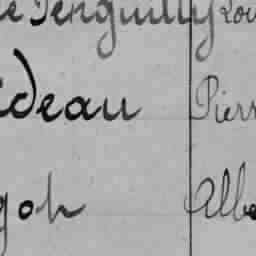 e Penguilly Lou
ideau Pierr
goh Albe